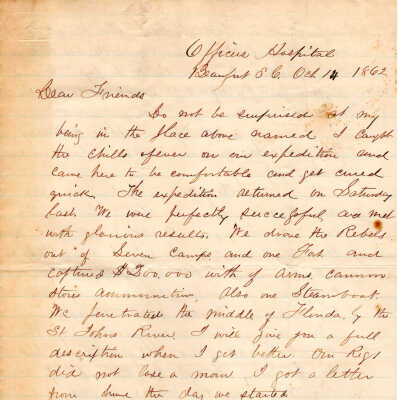 Officers Hospital
Beaufort S C. Oct 14 1862
Dear Friends
Do not be surprised at my
being in the place above named I caught
the chills & fever on our expedition and
came here to be comfortable and get cured
quick. The expedition returned on Saturday
last. We were perfectly successful and met
with glorious results. We drove the Rebels
out of Seven Camps and one Fort and
captured $200,000 worth of arms, cannon
stores ammunition. Also one Steamboat.
We penetrated the middle of Florida by the
St Johns River. I will give you a full
description when I get better. Our Regt
did not lose a man. I got a letter
from home the day we started